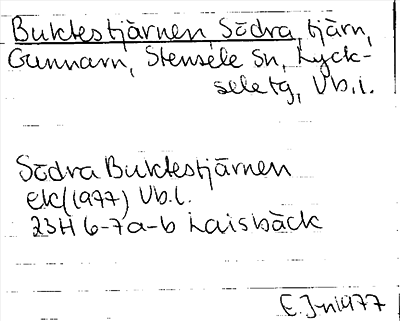 Buktestjärnen, Södra, tjärn,
Gunnarn, Stensele Sn, Lyck-
sele tg, Vb.l.
Södra Buktestjärnen
ek(1977) Vb.l.
23H 6-7a-b Laisbäck
1977